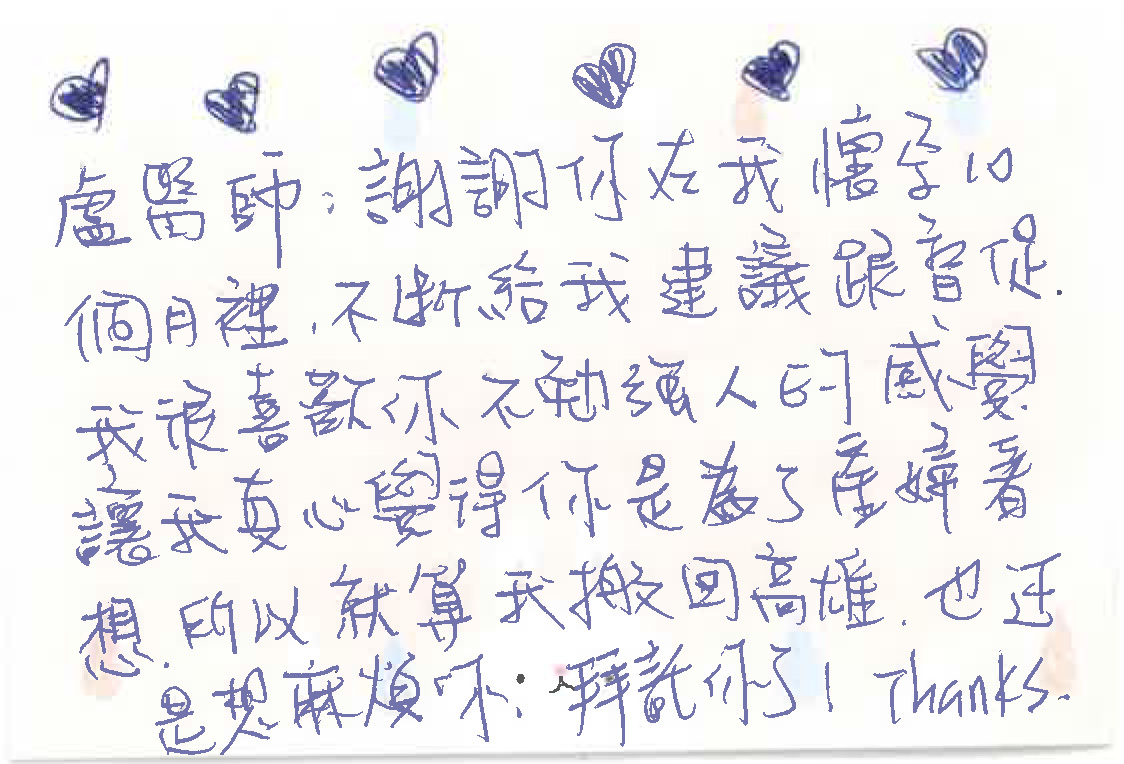 盧醫師:謝謝你在我懷孕10
個月裡,不斷給我建議跟督促.
我很喜歡你不勉強人的感覺
讓我真心覺得你是為了產婦着
想.所以就算我搬回高雄.也还
是想麻煩你:拜託你了! Thanks.